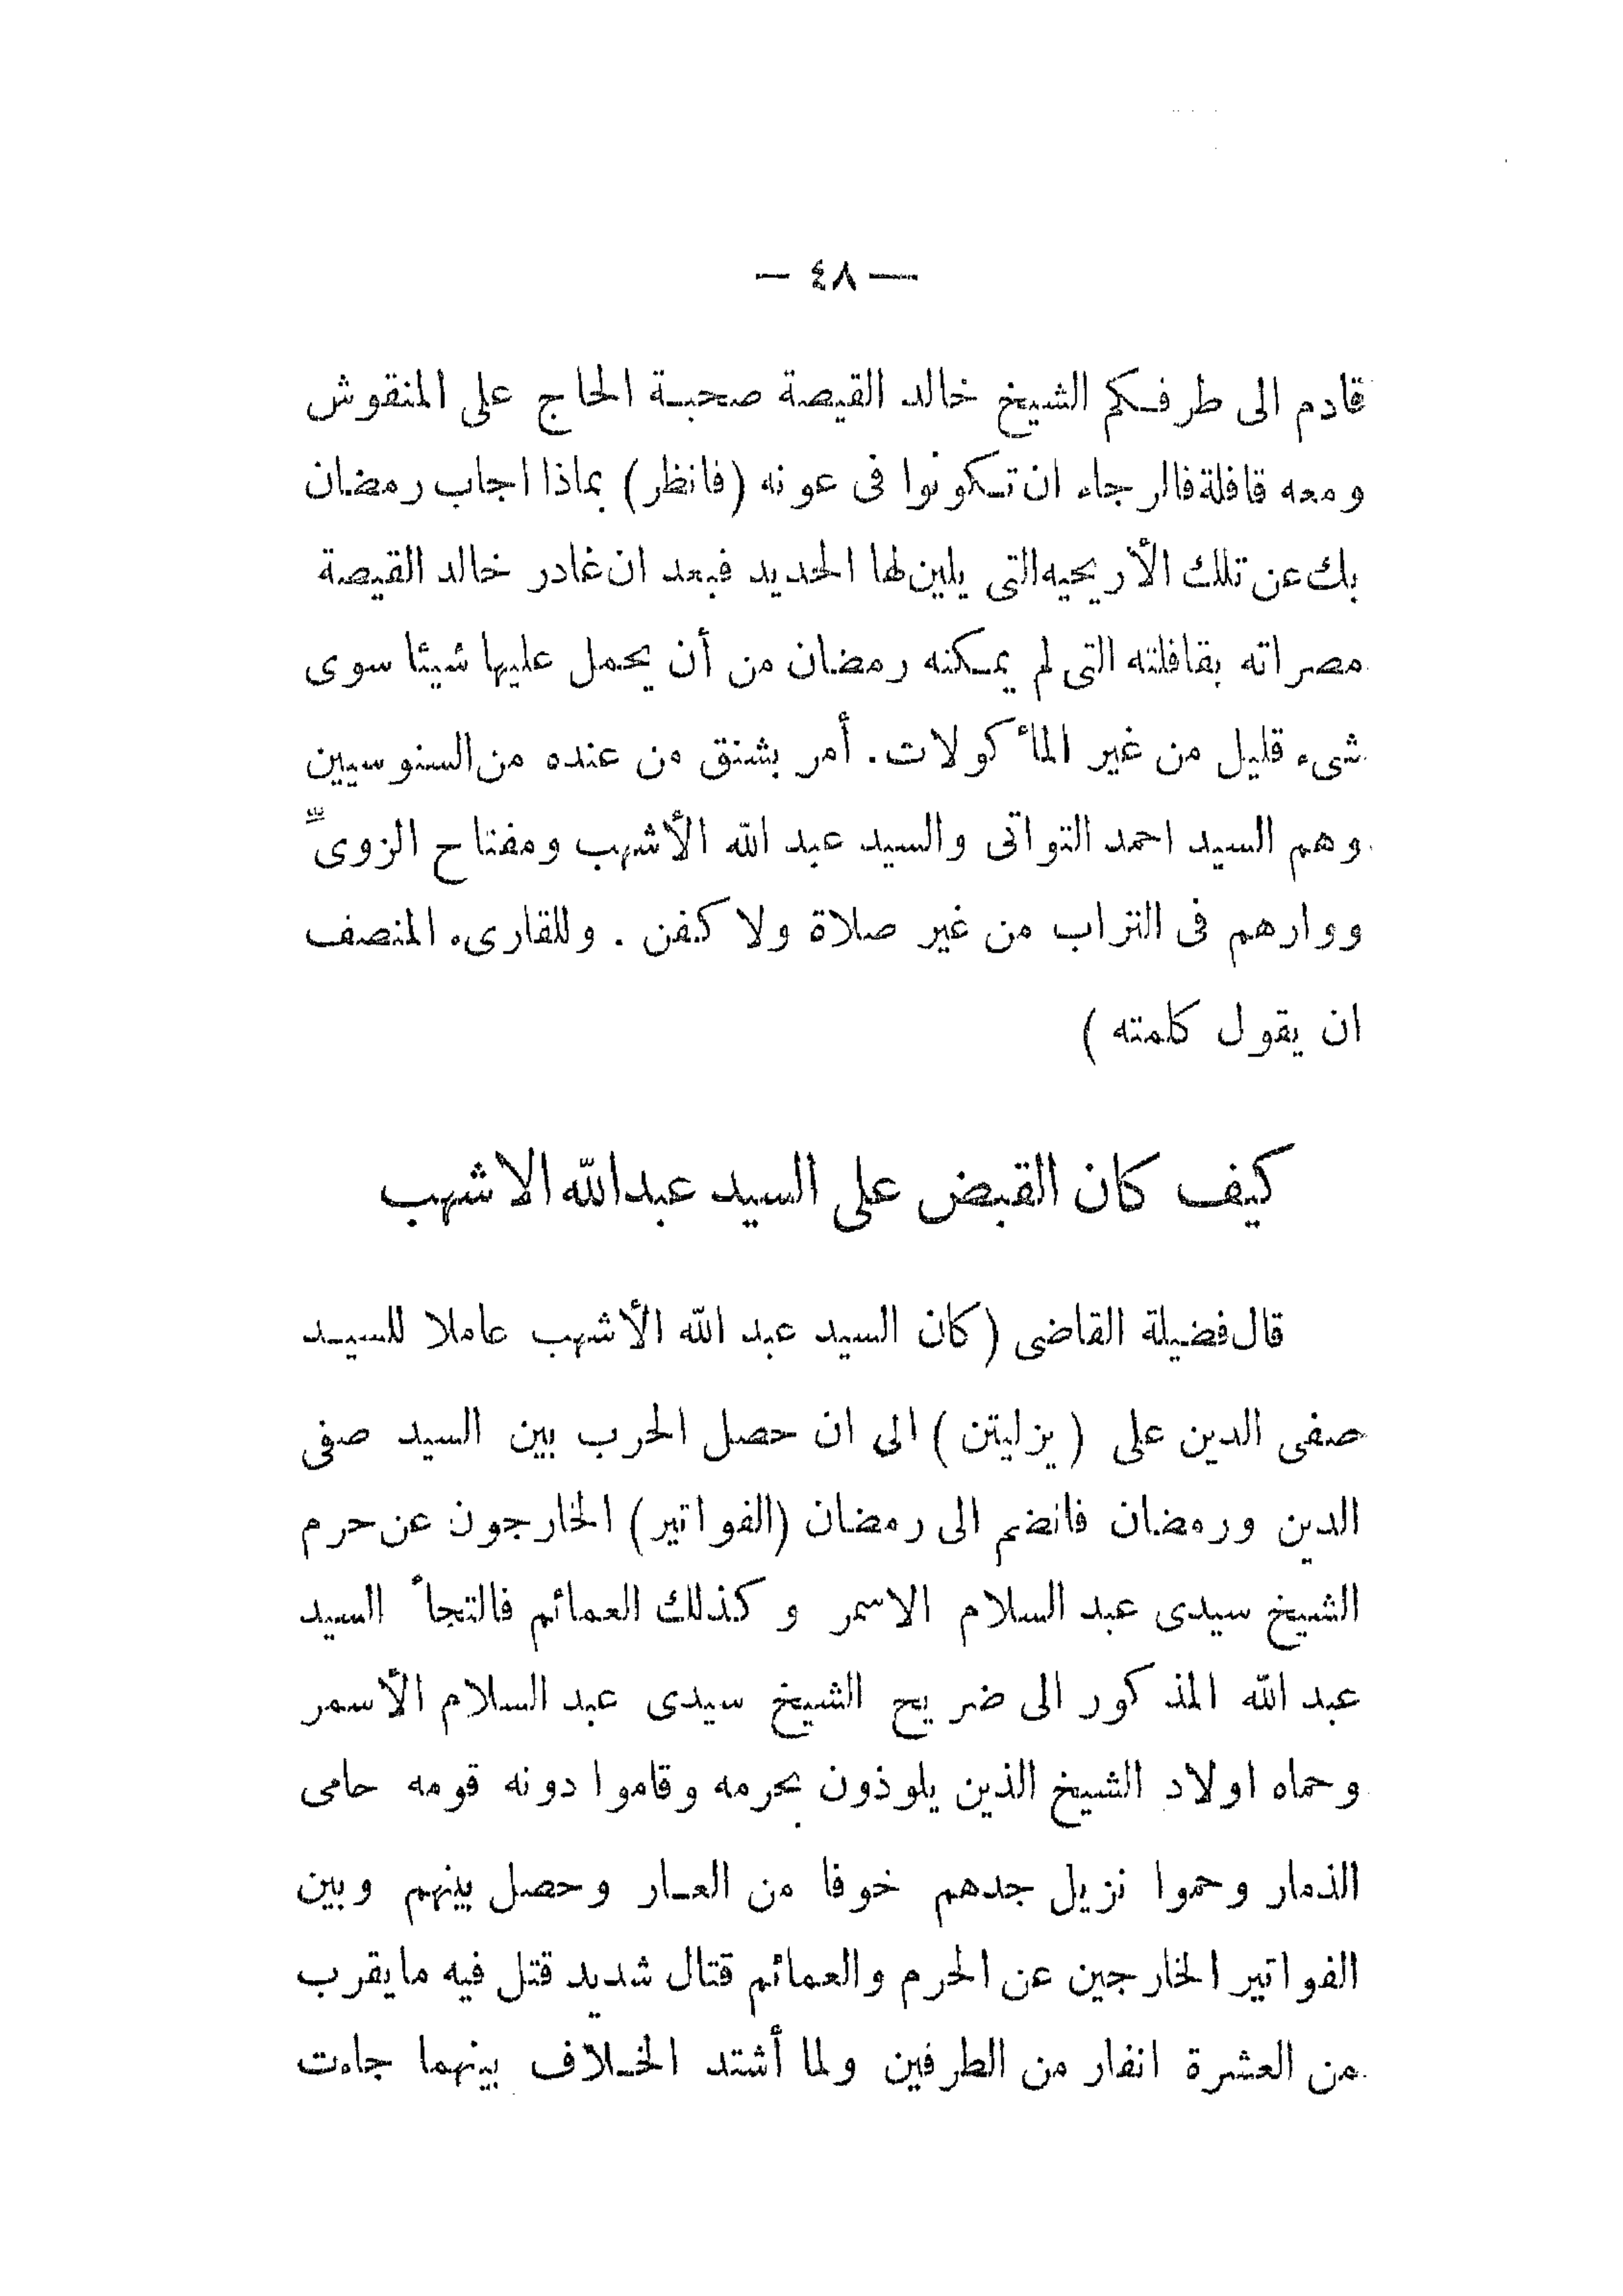 — ٤٨ —
قادم الى طرفكم الشيخ خالد القيصة صحبة الحاج على المنقوش
ومعه قافلة فالرجاء ان تكونوا فى عونه (فانظر) بماذا اجاب رمضان
بك عن تلك الأريحيه التى يلين لها الحديد فبعد ان غادر خالد القيصة
مصراته بقافلته التى لم يمكنه رمضان من أن يحمل عليها شيئا سوى
شىء قليل من غير المأكولات. أمر بشنق من عنده من السنوسيين
وهم السيد احمد التواتى والسيد عبد الله الأشهب ومفتاح الزوىّ
ووارهم فى التراب من غير صلاة ولا كفن . وللقارىء المنصف
ان يقول كلمته )
كيف كان القبض على السيد عبدالله الاشهب
قال فضيلة القاضى (كان السيد عبد الله الأشهب عاملا للسيد
صفى الدين على ( يزليتن ) الى ان حصل الحرب بين السيد صفى
الدين ورمضان فانضم الى رمضان (الفواتير) الخارجون عن حرم
الشيخ سيدى عبد السلام الاسمر وكذلك العمائم فالتجأ السيد
عبد الله المذكور الى ضريح الشيخ سيدى عبد السلام الأسمر
وحماه اولاد الشيخ الذين يلوذون بحرمه وقاموا دونه قومه حامى
الذمار وحموا نزيل جدهم خوفا من العار وحصل بينهم وبين
الفواتير الخارجين عن الحرم والعمائم قتال شديد قتل فيه مايقرب
من العشرة انفار من الطرفين ولما أشتد الخلاف بينهما جاءت